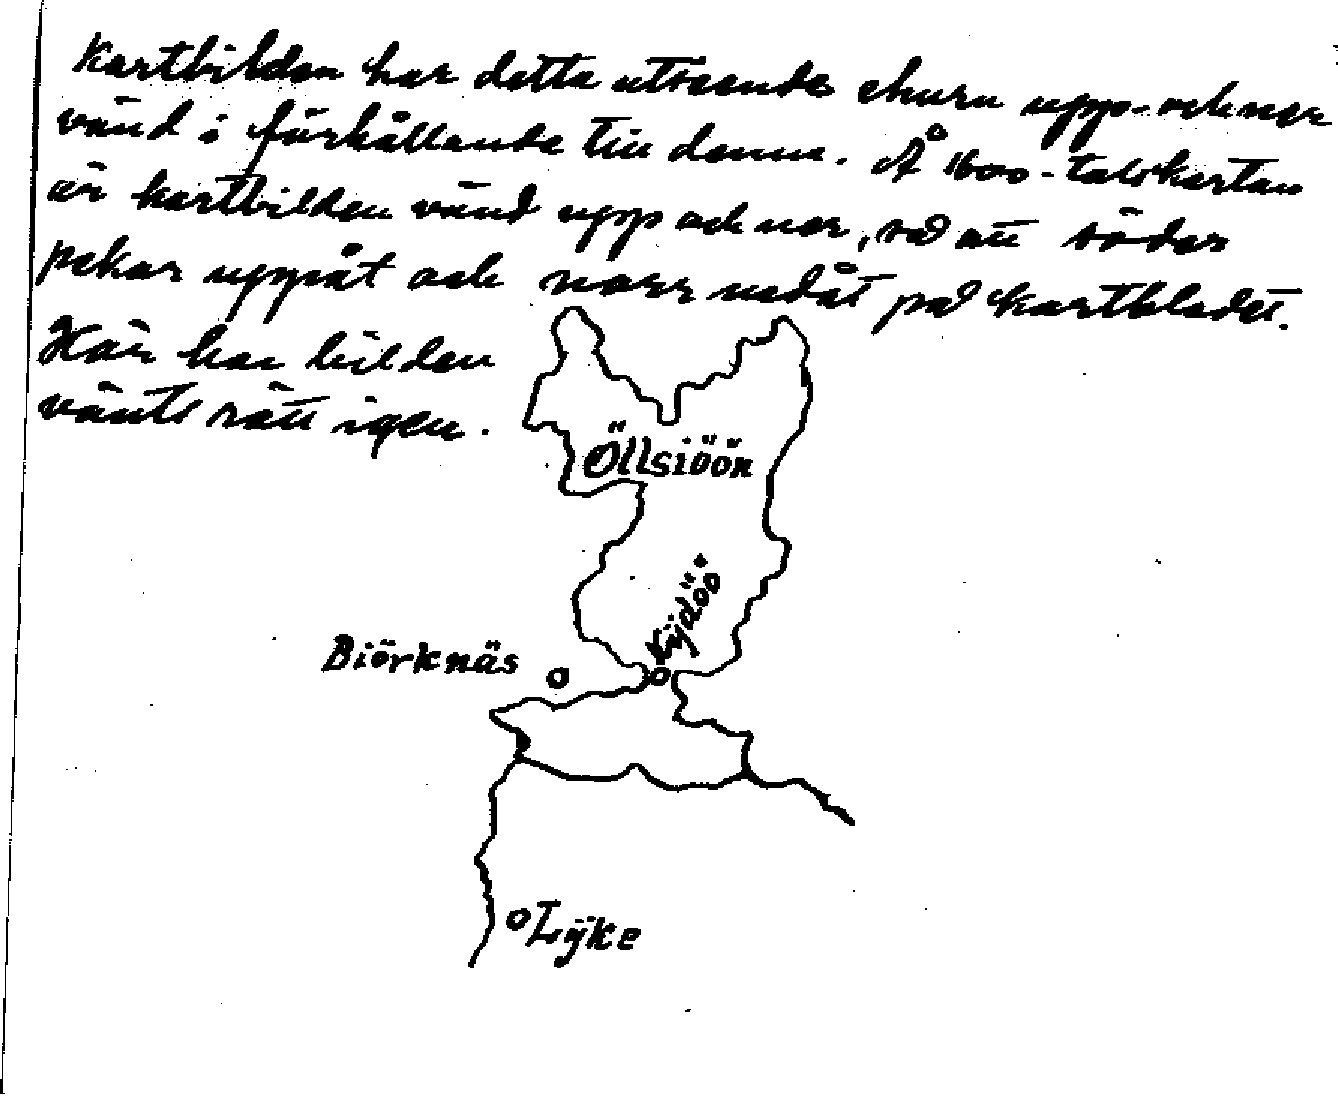 Kartbilden har detta utseende ehuru upp- och ner
vänd i förhållande till denna. Å 1600-talskartan
är kartbilden vänd upp och ner, så att söder
pekar uppåt och norr nedåt på kartbladet.
Här har bilden
vänts rätt igen.
Öllsiöön
Kijdöö
Biörknäs
Lÿke